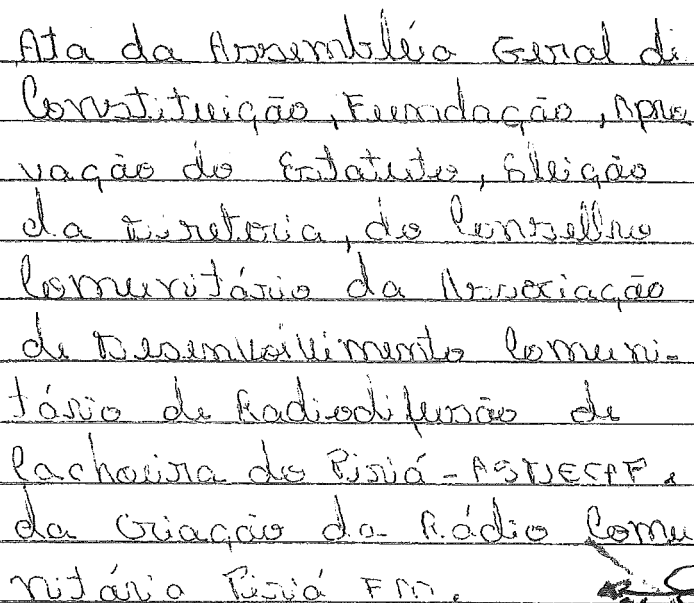 Ata da Assembléia Geral de
Constituição, Fundação, Apro
vação do Estatuto, Eleição
da Diretoria, do Conselho
Comunitário da Associação
de Desenvolvimento Comuni-
tário de Radiodifusão de
Cachoeira do Piriá - e
da Criação da Rádio Comu
nitária Piriá FM.